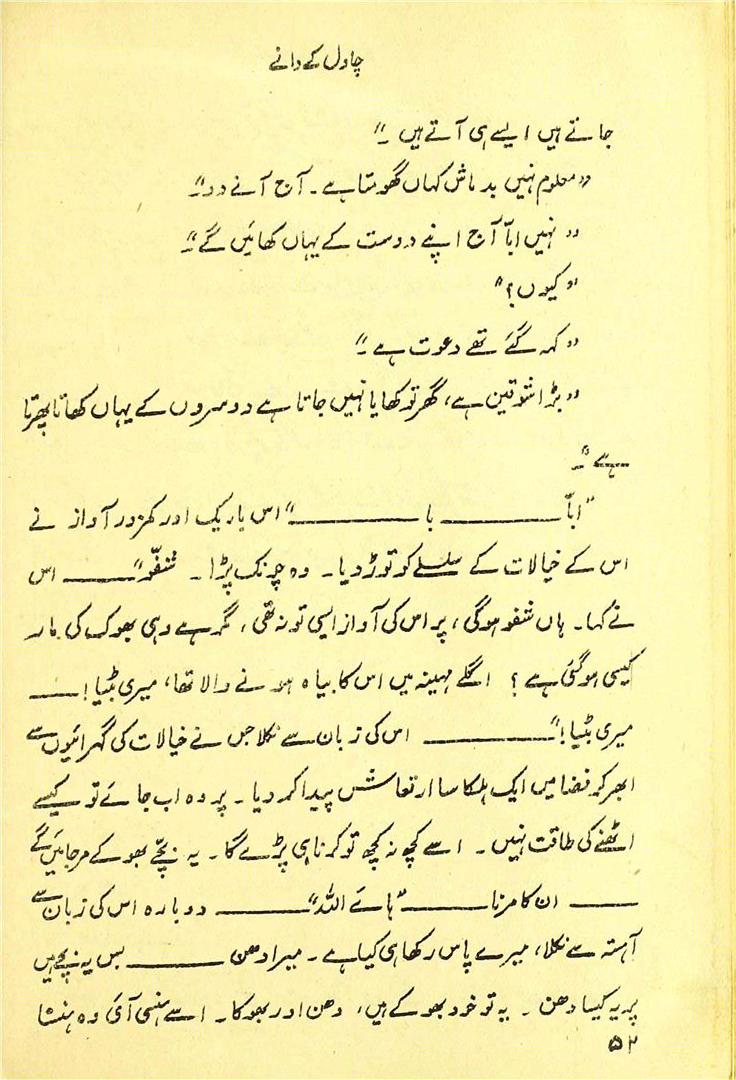 چاول کے دانے
جاتے ہیں ایسے ہی آتے ہیں ۔"
"معلوم نہیں بدماش کہاں گھومتا ہے ۔ آج آنے دو ۔"
"نہیں ابّا آج اپنے دوست کے یہاں کھائیں گے ۔"
"کیوں؟"
"کہہ گئے تھے دعوت ہے ۔"
"بڑا شوقین ہے، گھر تو کھایا نہیں جاتا ہے دوسروں کے یہاں کھاتا پھرتا
ہے ۔"
"ابّا ــــــــــ با ــــــــــ" اس باریک اور کمزور آواز نے
اس کے خیالات کے سلسلے کو توڑ دیا ۔ وہ چونک پڑا ۔ شفّو" ــــــــــ اس
نے کہا ۔ ہاں شفو ہوگی، پر اس کی آواز ایسی تو نہ تھی، گر ہے وہی بھوک کی مار
کیسی ہوگئی ہے ؟ اگلے مہینہ میں اس کا بیاہ ہونے والا تھا، میری بٹیا! ــــــــــ
میری بٹیا!" ــــــــــ اس کی زبان سے نکلا جس نے خیالات کی گہرائیوں سے
ابھر کر فضا میں ایک ہلکا سا ارتعاش پیدا کر دیا ۔ پر وہ اب جائے تو کیسے
اٹھنے کی طاقت نہیں ۔ اسے کچھ نہ کچھ تو کرنا ہی پڑے گا ۔ یہ بچّے بھوکے مرجائیں گے
ــــــــــ ان کا مرنا ــــــــــ "ہائے اللہ" ــــــــــ دوبارہ اس کی زبان سے
آہستہ سے نکلا، میرے پاس رکھا ہی کیا ہے ۔ میرا دھن ــــــــــ بس یہ بچے ہیں
پر یہ کیسا دھن ۔ یہ تو خود بھوکے ہیں، دھن اور بھوکا ۔ اسے ہنسی آئی وہ ہنسا
۵۲